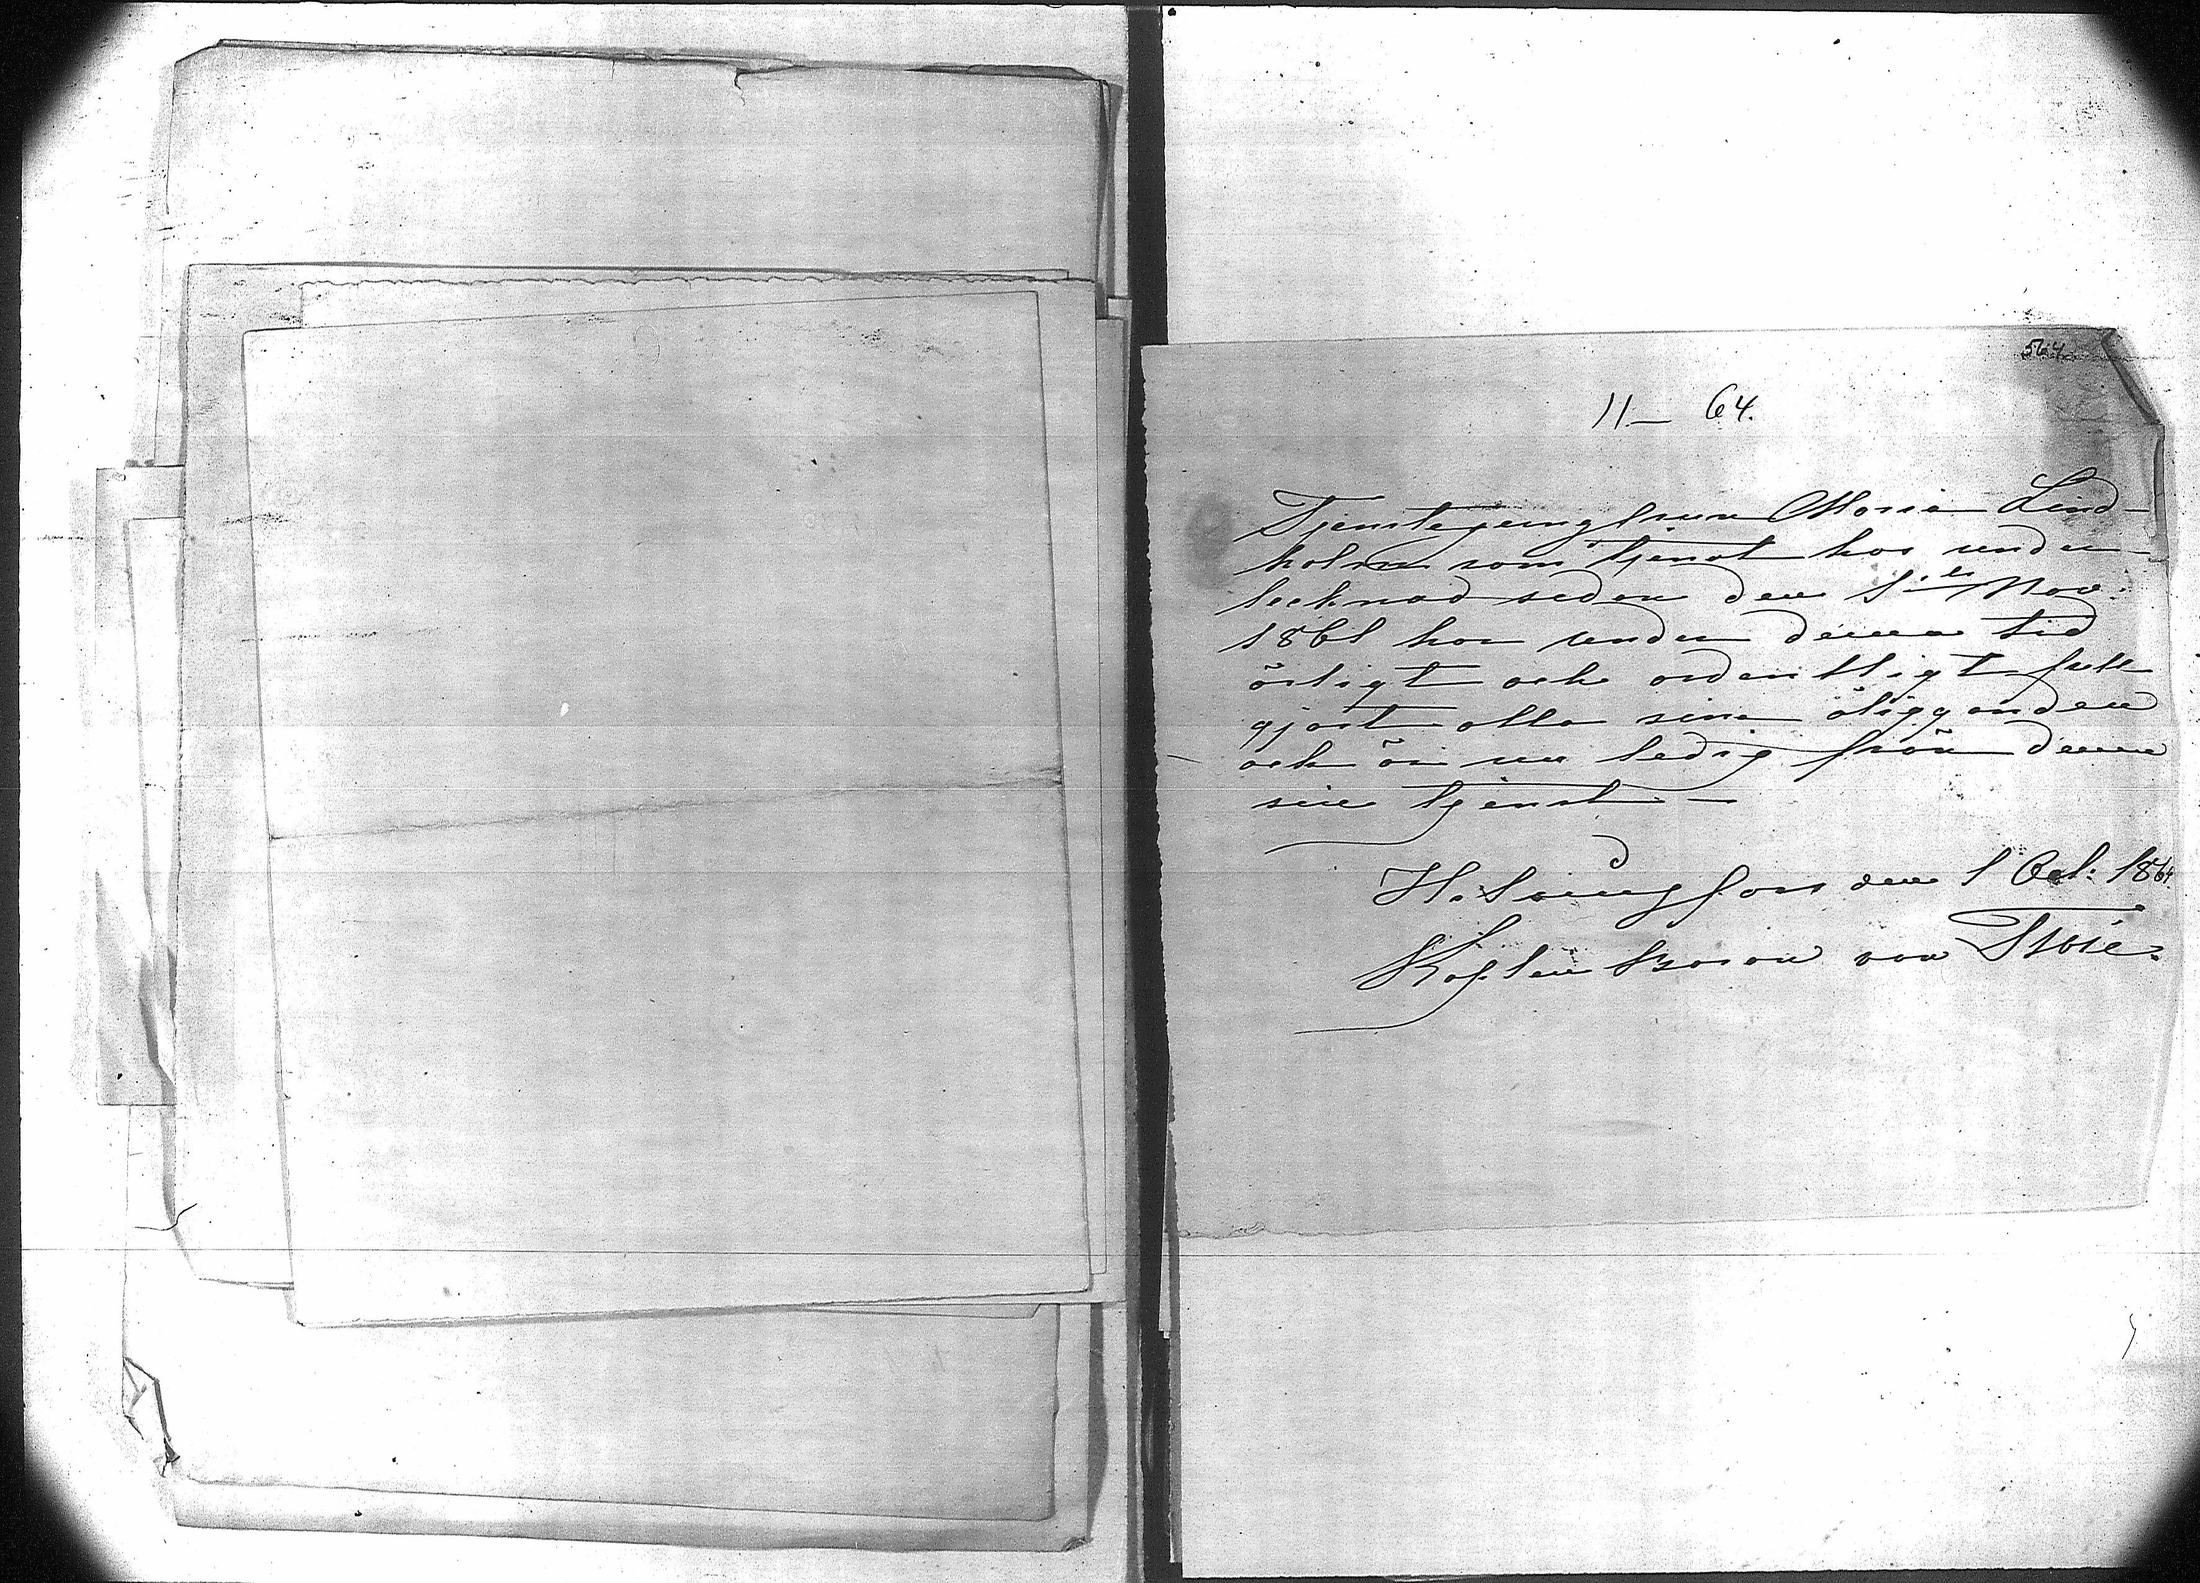 564
11– 64.
Tjenstepigan Maria Lind-
holm som tjenat hos under-
tecknad sedan den 1sta Nov.
1861 har under denna tid
ärligt och ordentligt full-
gjort alla sina åligganden
och är nu ledig från denna
sin tjenst –
Helsingfors den 1 Oct: 1864
von